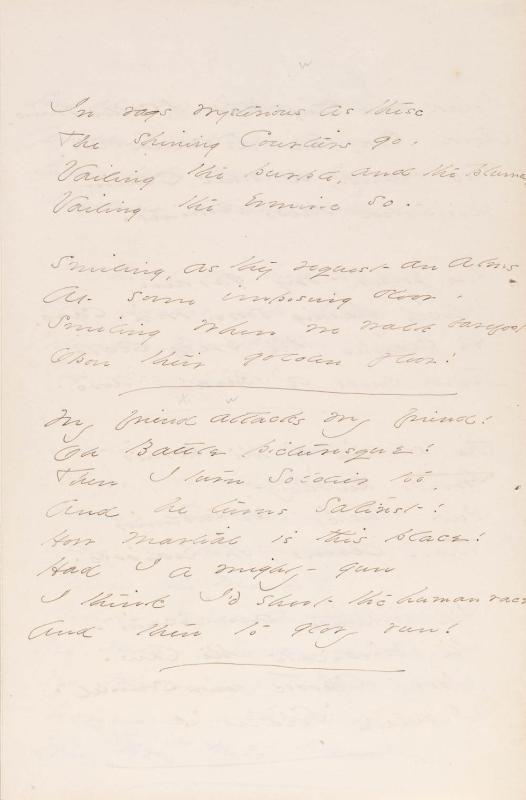 In rags mysterious as these
The shining Courtiers go,
Vailing the purple, and the plumes
Vailing the Ermine so.
Smiling, as they request an Alms
At some imposing door,
Smiling when we walk barefoot
Upon their golden floor!
My friend attacks my friend!
Oh Battle picturesque!
Then I turn Soldier too,
And he turns Satirist!
How martial is this place!
Had I a mighty gun
I think I'd shoot the human race
And then to glory run!